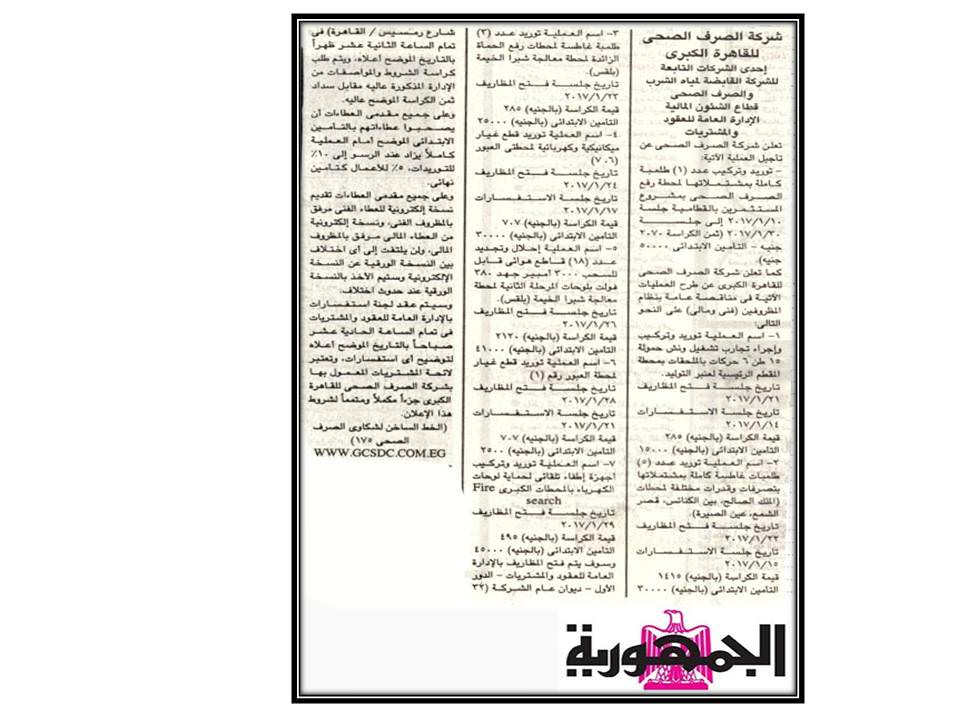 شركة الصرف الصحى
للقاهرة الكبرى
إحدى الشركات التابعة
للشركة القابضة لمياه الشرب
والصرف الصحى
قطاع الشئون المالية
الإدارة العامة للعقود
والمشتريات
تعلن شركة الصرف الصحى عن
تأجيل العملية الآتية:
- توريد وتركيب عدد (١) طلمبة
كاملة بمشتملاتها لمحطة رفع
الصرف الصحى بمشروع
المستثمرين بالقطامية جلسة
٢٠١٧/١/١٠ إلى جلسة
٢٠١٧/١/٣٠ (ثمن الكراسة ٢٠٧٠
جنيه - التأمين الابتدائى ٥٠٠٠٠
جنيه).
كما تعلن شركة الصرف الصحى
للقاهرة الكبرى عن طرح العمليات
الآتية فى مناقصة عامة بنظام
المظروفين (فنى ومالى) على النحو
التالى:
١- اسم العملية توريد وتركيب
وإجراء تجارب تشغيل ونش حمولة
١٥ طن ٦ حركات بالملحقات بمحطة
المقطم الرئيسية لعنبر التوليد.
تاريخ جلسة فتح المظاريف
٢٠١٧/١/٢١
تاريخ جلسة الاستفسارات
٢٠١٧/١/١٤
قيمة الكراسة (بالجنيه) ٢٨٥
التأمين الابتدائى (بالجنيه) ١٥٠٠٠
٢- اسم العملية توريد عدد (٥)
طلمبات غاطسة كاملة بمشتملاتها
بتصرفات وقدرات مختلفة لمحطات
(الملك الصالح، بين الكنائس، قصر
الشمع، عين الصيرة).
تاريخ جلسة فتح المظاريف
٢٠١٧/١/٢٢
تاريخ جلسة الاستفسارات
٢٠١٧/١/١٥
قيمة الكراسة (بالجنيه) ١٤١٥
التأمين الابتدائى (بالجنيه) ٣٠٠٠٠
٣- اسم العملية توريد عدد (٢)
طلمبة غاطسة لمحطات رفع الحمأة
الزائدة لمحطة معالجة شبرا الخيمة
(بلقس).
تاريخ جلسة فتح المظاريف
٢٠١٧/١/٢٣
قيمة الكراسة (بالجنيه) ٢٨٥
التأمين الابتدائى (بالجنيه) ٢٥٠٠٠
٤- اسم العملية توريد قطع غيار
ميكانيكية وكهربائية لمحطتى العبور
(٦، ٧)
تاريخ جلسة فتح المظاريف
٢٠١٧/١/٢٤
تاريخ جلسة الاستفسارات
٢٠١٧/١/١٧
قيمة الكراسة (بالجنيه) ٧٠٧
التأمين الابتدائى (بالجنيه) ٣٠٠٠٠
٥- اسم العملية إحلال وتجديد
عدد (١٨) قاطع هوائى قابل
للسحب ٣٠٠٠ أمبير جهد ٣٨٠
فولت بلوحات المرحلة الثانية لمحطة
معالجة شبرا الخيمة (بلقس).
تاريخ جلسة فتح المظاريف
٢٠١٧/١/٢٦
قيمة الكراسة (بالجنيه) ٢١٢٠
التأمين الابتدائى (بالجنيه) ٤١٠٠٠
٦- اسم العملية توريد قطع غيار
لمحطة العبور رقم (١)
تاريخ جلسة فتح المظاريف
٢٠١٧/١/٢٨
تاريخ جلسة الاستفسارات
٢٠١٧/١/٢١
قيمة الكراسة (بالجنيه) ٧٠٧
التأمين الابتدائى (بالجنيه) ٢٥٠٠
٧- اسم العملية توريد وتركيب
أجهزة إطفاء تلقائى لحماية لوحات
الكهرباء بالمحطات الكبرى Fire
search
تاريخ جلسة فتح المظاريف
٢٠١٧/١/٢٩
قيمة الكراسة (بالجنيه) ٤٩٥
التأمين الابتدائى (بالجنيه) ٤٥٠٠٠
وسوف يتم فتح المظاريف بالإدارة
العامة للعقود والمشتريات - الدور
الأول - ديوان عام الشركة (٣٢
شارع رمسيس / القاهرة) فى
تمام الساعة الثانية عشر ظهراً
بالتاريخ الموضح أعلاه، ويتم طلب
كراسة الشروط والمواصفات من
الإدارة المذكورة عاليه مقابل سداد
ثمن الكراسة الموضح عاليه.
وعلى جميع مقدمى العطاءات أن
يصحبوا عطاءاتهم بالتأمين
الابتدائى الموضح أمام العملية
كاملاً يزاد عند الرسو إلى ١٠٪
للتوريدات، ٥٪ للأعمال كتأمين
نهائى.
وعلى جميع مقدمى العطاءات تقديم
نسخة إلكترونية للعطاء الفنى مرفق
بالمظروف الفنى، ونسخة إلكترونية
من العطاء المالى مرفق بالمظروف
المالى، ولن يلتفت إلى أى اختلاف
بين النسخة الورقية عن النسخة
الإلكترونية وسيتم الأخذ بالنسخة
الورقية عند حدوث اختلاف.
وسيتم عقد لجنة استفسارات
بالإدارة العامة للعقود والمشتريات
فى تمام الساعة الحادية عشر
صباحاً بالتاريخ الموضح أعلاه
لتوضيح أى استفسارات، وتعتبر
لائحة المشتريات المعمول بها
بشركة الصرف الصحى للقاهرة
الكبرى جزءاً مكملاً ومتمماً لشروط
هذا الإعلان.
(الخط الساخن لشكاوى الصرف
الصحى ١٧٥)
WWW.GCSDC.COM.EG
الجمهورية